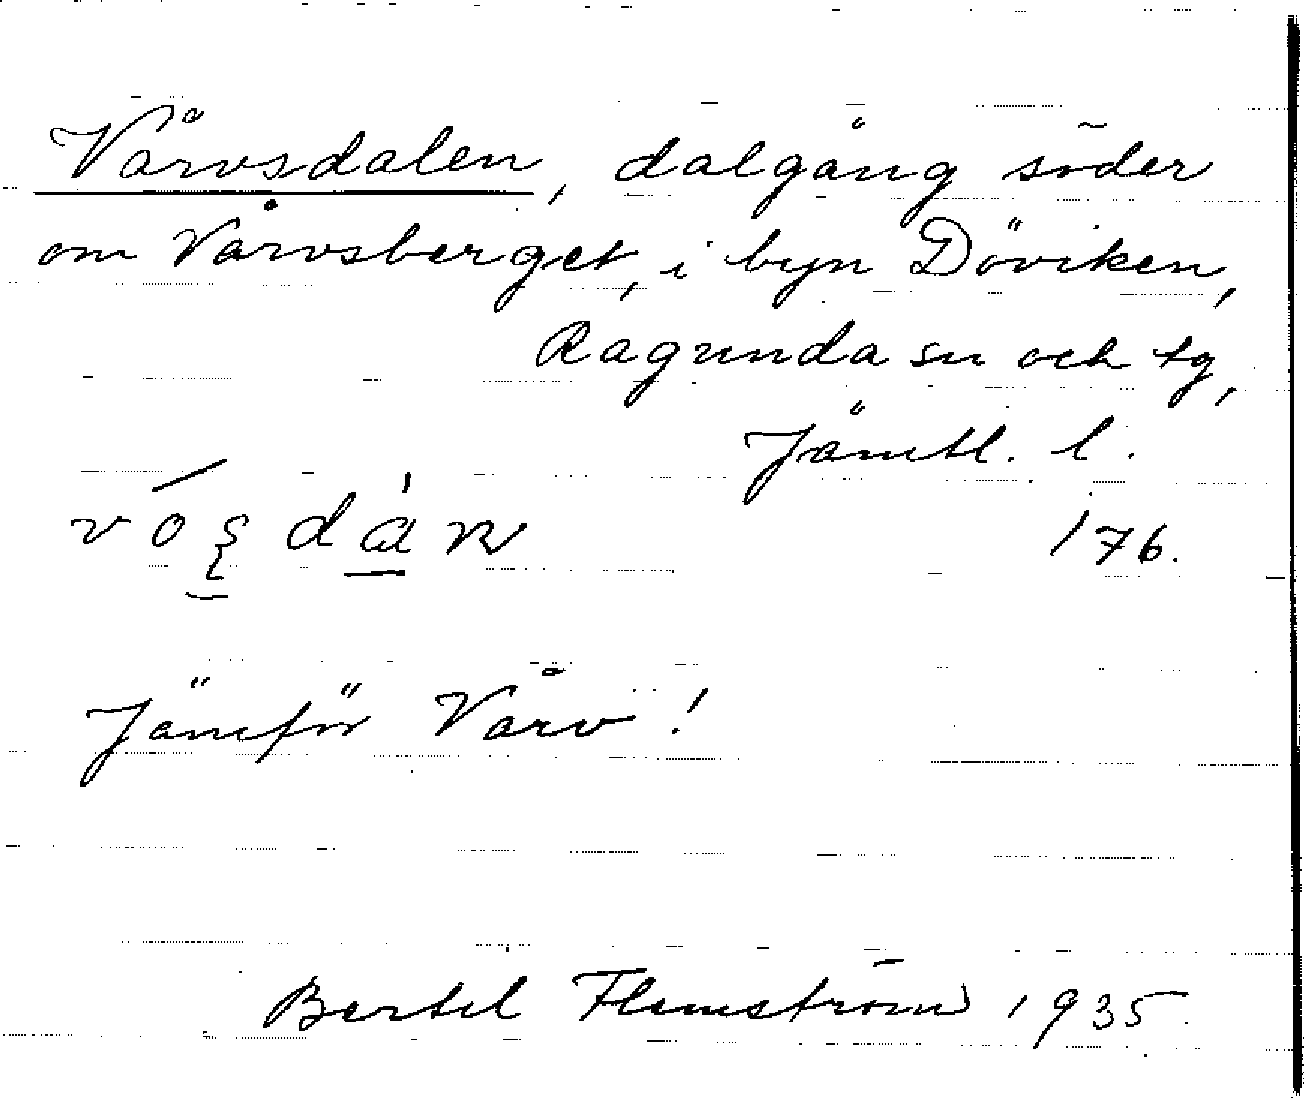 Vårvsdalen, dalgång söder
om Vårvsberget, i byn Döviken,
Ragunda sn och tg,
Jämtl. l.
176.
Jämför Vårv!
Bertil Flemström 1935